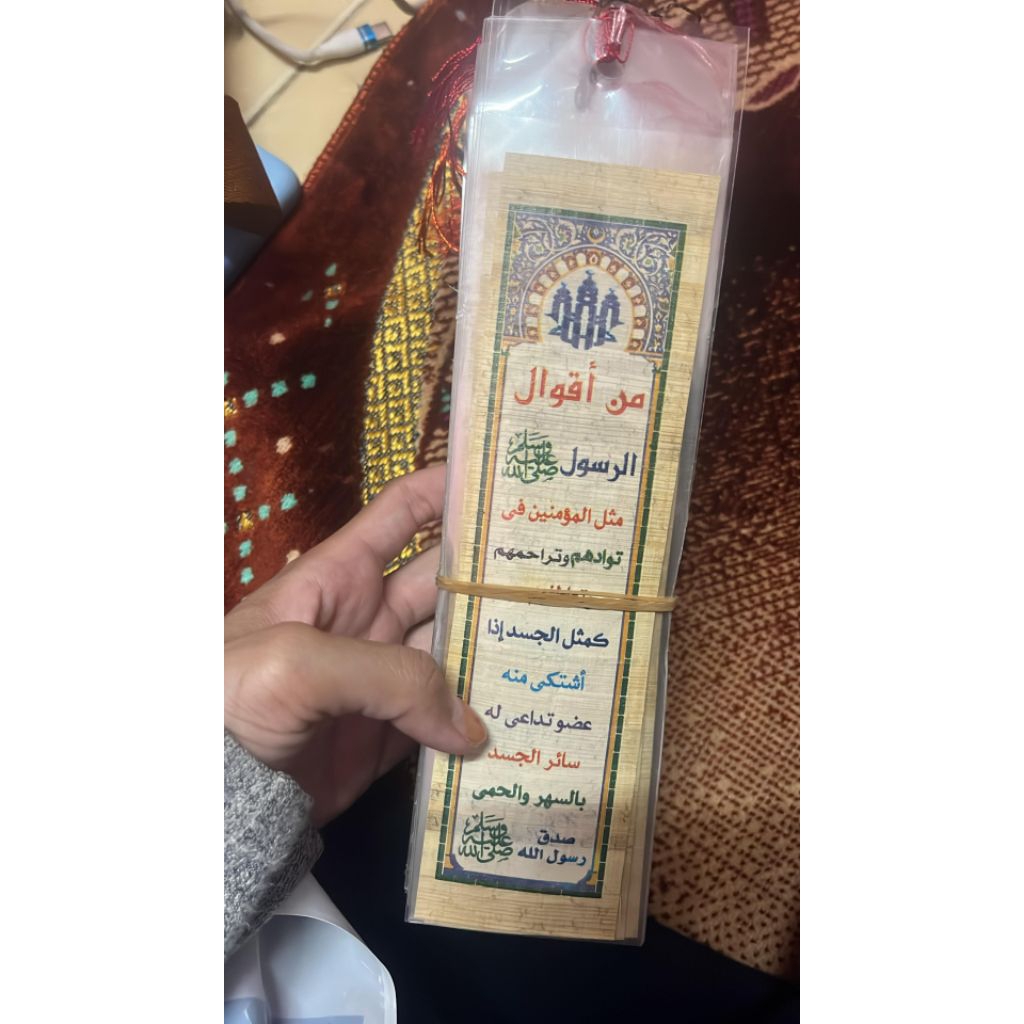 من أقوال
الرسول صلى الله عليه وسلم
مثل المؤمنين فى
توادهم وتراحمهم
كمثل الجسد إذا
أشتكى منه
عضو تداعى له
سائر الجسد
بالسهر والحمى
صدق
رسول الله صلى الله عليه وسلم